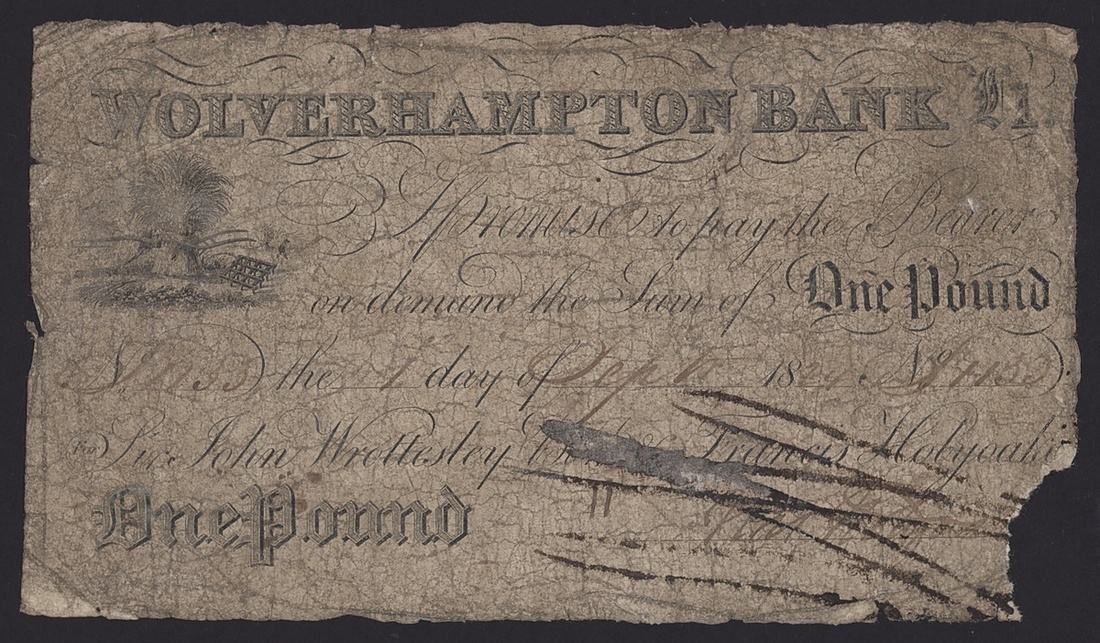 WOLVERHAMPTON BANK £1.
I promise to pay the Bearer
on demand the Sum of One Pound
the 1 day of Sept 18
For Sir John Wrottesley Francis Holyoake
One Pound